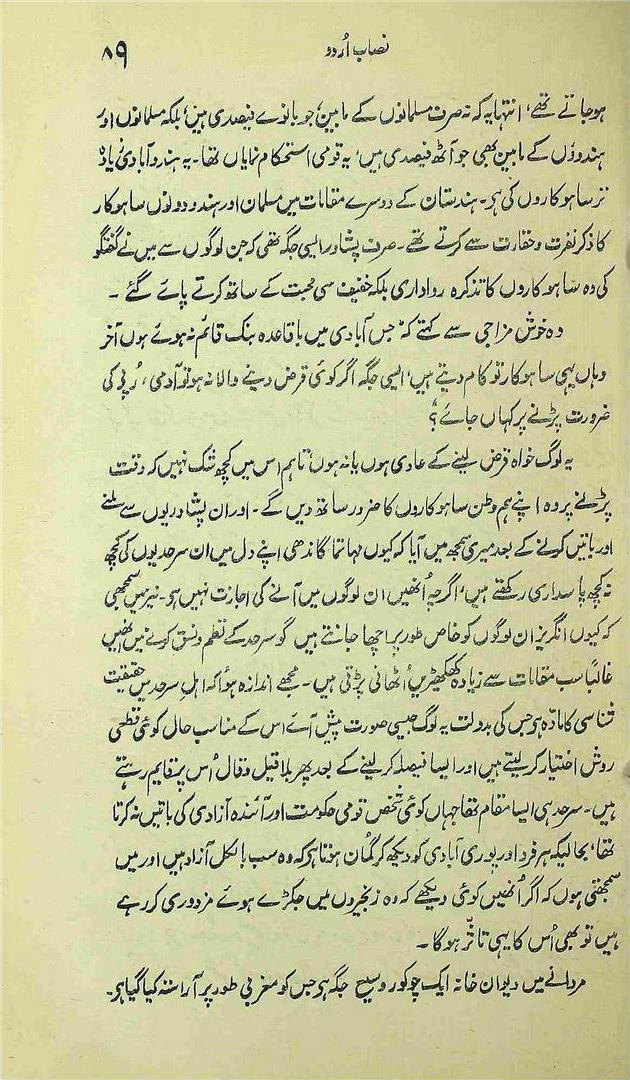 نصاب اُردو
۸۹
ہوجاتے تھے، انتہا یہ کہ نہ صرف مسلمانوں کے مابین جو بانوے فیصدی ہیں، بلکہ مسلمانوں اور
ہندوؤں کے مابین بھی جو آٹھ فیصدی ہیں، یہ قومی استحکام نمایاں تھا۔ یہ ہندو آبادی زیادہ
تر ساہوکاروں کی ہو۔ ہندستان کے دوسرے مقامات میں مسلمان اور ہندو دونوں ساہوکار
کا ذکر نفرت و حقارت سے کرتے تھے۔ صرف پشاور ایسی جگہ تھی کہ جن لوگوں سے میں نے گفتگو
کی وہ ساہوکاروں کا تذکرہ رواداری بلکہ خفیف سی محبت کے ساتھ کرتے پائے گئے۔
وہ خوش مزاجی سے کہتے کہ "جس آبادی میں باقاعدہ بنک قائم نہ ہوئے ہوں آخر
وہاں یہی ساہوکار تو کام دیتے ہیں، ایسی جگہ اگر کوئی قرض دینے والا نہ ہو تو آدمی، رُپی کی
ضرورت پڑنے پر کہاں جائے"؟
یہ لوگ خواہ قرض لینے کے عادی ہوں یا نہ ہوں تاہم اس میں کچھ شک نہیں کہ وقت
پڑنے پر وہ اپنے ہم وطن ساہوکاروں کا ضرور ساتھ دیں گے۔ اور ان پشاوریوں سے ملنے
اور باتیں کرنے کے بعد میری سمجھ میں آیا کہ کیوں مہاتما گاندھی اپنے دل میں ان سرحدیوں کی کچھ
نہ کچھ پاسداری رکھتے ہیں، اگرچہ اُنھیں ان لوگوں میں آنے کی اجازت نہیں ہو۔ نیز میں سمجھی
کہ کیوں انگریز ان لوگوں کو خاص طور پر اچھا جانتے ہیں گو سرحد کے نظم و نسق کرنے میں اُنھیں
غالباً سب مقامات سے زیادہ کھکھیڑیں اُٹھانی پڑتی ہیں۔ مجھے اندازہ ہوا کہ اہلِ سرحد میں حقیقت
شناسی کا مادّہ ہو جس کی بدولت یہ لوگ جیسی صورت پیش آئے اس کے مناسب حال کوئی قطعی
روش اختیار کرلیتے ہیں اور ایسا فیصلہ کرلینے کے بعد پھر بلا قیل و قال اُس پر قایم رہتے
ہیں۔ سرحد ہی ایسا مقام تھا جہاں کوئی شخص قومی حکومت اور آئندہ آزادی کی باتیں نہ کرتا
تھا، بحالیکہ ہر فرد اور پوری آبادی کو دیکھ کر گمان ہوتا ہو کہ وہ سب بالکل آزاد ہیں اور میں
سمجھتی ہوں کہ اگر اُنھیں کوئی دیکھے کہ وہ زنجیروں میں جکڑے ہوئے مزدوری کر رہے
ہیں تو بھی اُس کا یہی تاثّر ہوگا۔
مردانے میں دیوان خانہ ایک چوکور وسیع جگہ ہو جس کو مغربی طور پر آراستہ کیا گیا ہو۔